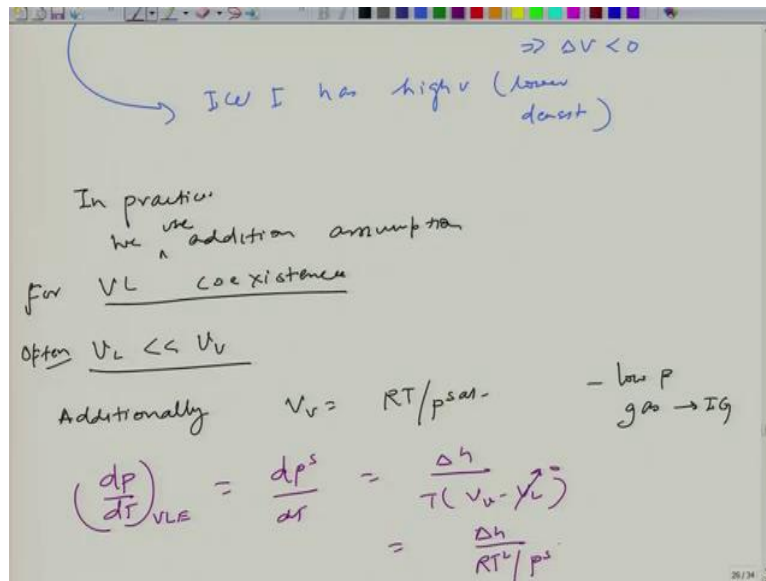 ⇒ ΔV < 0
ICE I has high v (lower
densit)
In practice
we use addition assumption
For VL coexistence
Often V_L << V_V
Additionally V_V = RT/p^sat. - low p
gas → IG
(dp/dT)_VLE = dp^s/dT = Δh/T(V_V - V_L)^0
= Δh/RT^2/p^s
26/34